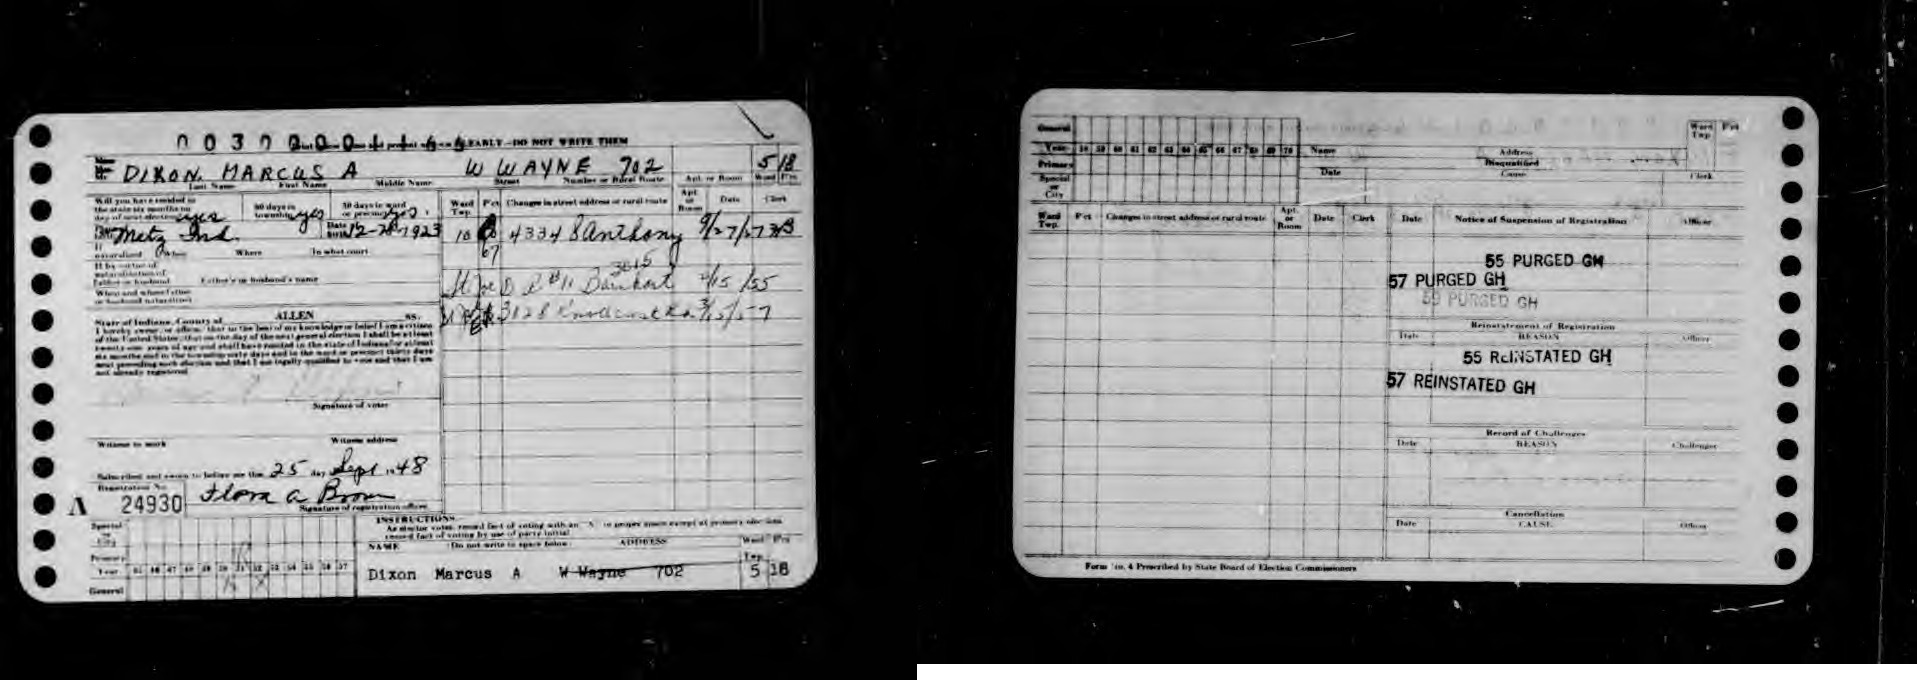 PEARLY—DO NOT WRITE THEM
DIXON, MARCUS A W WAYNE 702 5 18
Last Name First Name Middle Name Street Number or Rural Route Apt. or Room Ward Pct
Will you have resided in
the state six months on
day of next election yes
60 days in
township yes
30 days in ward
or precinct yes
Ward
Twp.
Pct
Changes in street address or rural route
Apt.
or
Room
Date
Clerk
Metz Ind. Date 12-28-1923
10 4334 S Anthony 9/27/
67
If
naturalized When Where In what court
If by virtue of
naturalization of
father or husband Father's or husband's name
When and where father
or husband naturalized
3015
Barnhart /15/55
3128
State of Indiana, County of ALLEN SS.
I hereby swear, or affirm, that to the best of my knowledge or belief I am a citizen
of the United States; that on the day of the next general election I shall be at least
twenty-one years of age and shall have resided in the state of Indiana for at least
six months and in the township sixty days and in the ward or precinct thirty days
next preceding such election and that I am legally qualified to vote and that I am
not already registered
Signature of voter
Witness to mark Witness address
Subscribed and sworn to before me this 25 day Sept 1948
Registration No.
A 24930 Flora A Brown
Signature of registration officer
Special
or
City
Primary
Year 45 46 47 48 49 50 51 52 53 54 55 56 57
General
INSTRUCTIONS
As elector votes, record fact of voting with an X in proper space except at primary election
record fact of voting by use of party initial
NAME (Do not write in space below) ADDRESS Ward Pct
Twp.
Dixon Marcus A W Wayne 702 5 18
General
Year 58 59 60 61 62 63 64 65 66 67 68 69 70
Primary
Special
or
City
Name Address
Disqualified
Date Cause Clerk
Ward
Twp
Pct
Ward
Twp.
Pct
Changes in street address or rural route
Apt.
or
Room
Date Clerk
Date Notice of Suspension of Registration Officer
55 PURGED GH
57 PURGED GH
59 PURGED GH
Reinstatement of Registration
Date REASON Officer
55 REINSTATED GH
57 REINSTATED GH
Record of Challenges
Date REASON Challenger
Cancellation
Date CAUSE Officer
Form No. 4 Prescribed by State Board of Election Commissioners